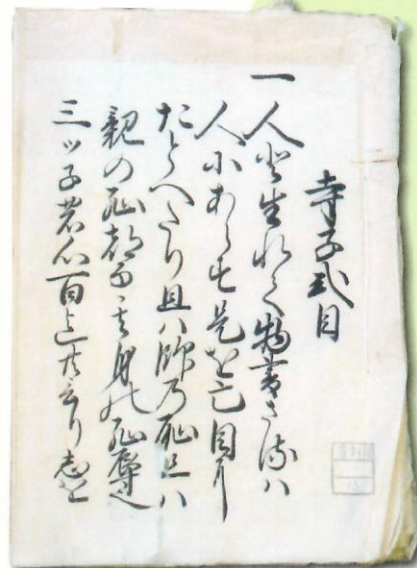 寺子式目
一人と生れて物書さるハ
人にあらす是を亡目に
たとへたり且ハ師の恥且ハ
親の恥都而ハ其身の恥辱也
三ツ子の心百迄共云り志を